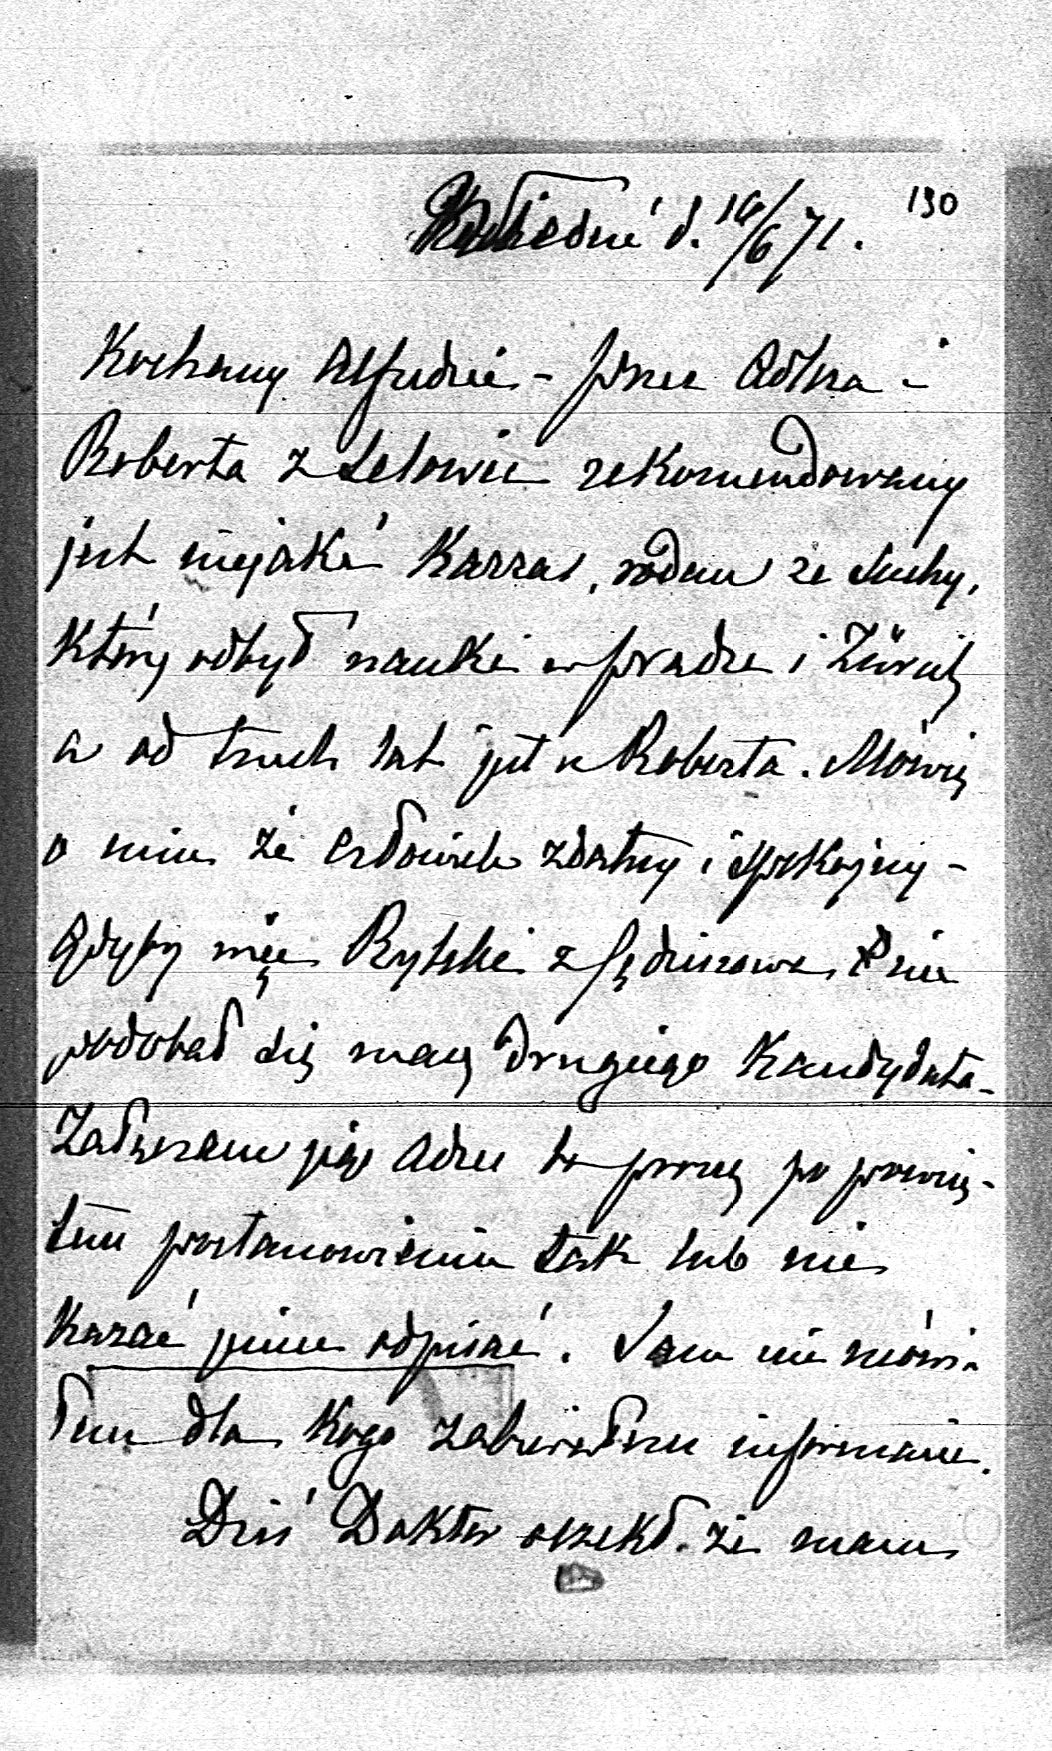 130
d. 16/6 71.
Kochany Alfredzie – przez Adlera i
Roberta z Selowic rekomendowany
jest niejaki Karras, rodem ze Suchy,
który odbył nauki w Pradze i Zürich
a od trzech lat jest u Roberta. Mówią
o nim że człowiek zdatny i spokojny –
Gdyby więc Rylski z nie
podobał się masz drugiego Kandydata –
Załączam jego adres to proszę po powzię-
tem postanowieniu tak lub nie
Kazać jemu odpisać. Sam nie mówi-
łem dla Kogo zabierałem informacie.
Dziś Doktor orzekł. że mam